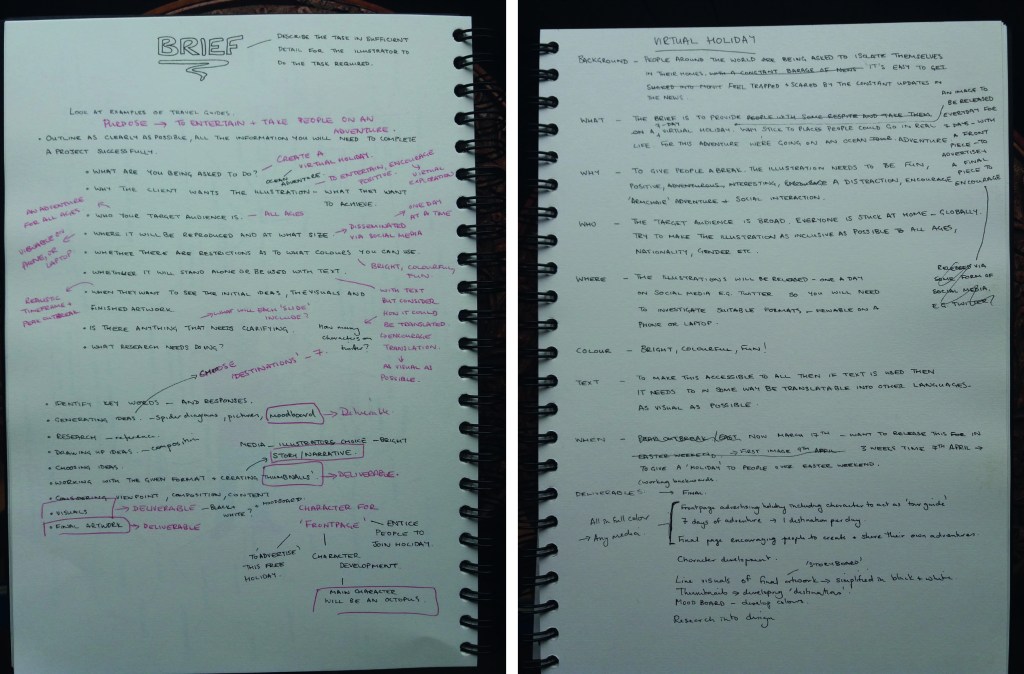 BRIEF
DESCRIBE THE TASK IN SUFFICIENT
DETAIL FOR THE ILLUSTRATOR TO
DO THE TASK REQUIRED.
LOOK AT EXAMPLES OF TRAVEL GUIDES.
PURPOSE → TO ENTERTAIN + TAKE PEOPLE ON AN
ADVENTURE.
• OUTLINE AS CLEARLY AS POSSIBLE, ALL THE INFORMATION YOU WILL NEED TO COMPLETE
A PROJECT SUCCESSFULLY.
• WHAT ARE YOU BEING ASKED TO DO?
CREATE A
VIRTUAL HOLIDAY.
OCEAN ADVENTURE
• WHY THE CLIENT WANTS THE ILLUSTRATION - WHAT THEY WANT
TO ACHIEVE.
TO ENTERTAIN, ENCOURAGE
POSITIVE
VIRTUAL
EXPLORATION
AN ADVENTURE
FOR ALL AGES
• WHO YOUR TARGET AUDIENCE IS. - ALL AGES
• WHERE IT WILL BE REPRODUCED AND AT WHAT SIZE
DISSEMINATED
VIA SOCIAL MEDIA
ONE DAY
AT A TIME
VIEWABLE ON
PHONE, OR
LAPTOP
• WHETHER THERE ARE RESTRICTIONS AS TO WHAT COLOURS YOU CAN USE
BRIGHT, COLOURFUL,
FUN.
• WHETHER IT WILL STAND ALONE OR BE USED WITH TEXT.
WITH TEXT
BUT CONSIDER
HOW IT COULD
BE TRANSLATED.
ENCOURAGE
TRANSLATION.
↓
AS VISUAL AS
POSSIBLE.
REALISTIC
TIMEFRAME +
• WHEN THEY WANT TO SEE THE INITIAL IDEAS, THE VISUALS AND
FINISHED ARTWORK
WHAT WILL EACH 'SLIDE'
INCLUDE?
• IS THERE ANYTHING THAT NEEDS CLARIFYING.
How many
characters on
twitter?
• WHAT RESEARCH NEEDS DOING?
CHOOSE
'DESTINATIONS' - 7.
• IDENTIFY KEY WORDS - AND RESPONSES.
• GENERATING IDEAS - Spider diagrams, pictures, moodboard → Deliverable.
• RESEARCH - reference.
• DRAWING UP IDEAS - composition
• CHOOSING IDEAS.
MEDIA - ILLUSTRATORS CHOICE - BRIGHT
STORY/NARRATIVE.
• WORKING WITH THE GIVEN FORMAT + CREATING 'THUMBNAILS' → DELIVERABLE.
• CONSIDERING VIEWPOINT, COMPOSITION, CONTENT
+ MOODBOARD.
• VISUALS → DELIVERABLE - BLACK +
WHITE?
• FINAL ARTWORK → DELIVERABLE
CHARACTER FOR
'FRONTPAGE'
ENTICE
PEOPLE TO
JOIN HOLIDAY.
TO 'ADVERTISE'
THIS FREE
HOLIDAY.
CHARACTER
DEVELOPMENT
MAIN CHARACTER
WILL BE AN OCTOPUS.
VIRTUAL HOLIDAY
BACKGROUND - PEOPLE AROUND THE WORLD ARE BEING ASKED TO ISOLATE THEMSELVES
IN THEIR HOMES. WITH A CONSTANT BARAGE OF NEWS IT'S EASY TO GET
FEEL TRAPPED + SCARED BY THE CONSTANT UPDATES IN
THE NEWS.
WHAT - THE BRIEF IS TO PROVIDE PEOPLE WITH SOME RESPITE AND TAKE THEM
ON A 7-DAY VIRTUAL HOLIDAY. WHY STICK TO PLACES PEOPLE COULD GO IN REAL
LIFE FOR THIS ADVENTURE WERE GOING ON AN OCEAN ADVENTURE
AN IMAGE TO
BE RELEASED
EVERYDAY FOR
7 DAYS - WITH
A FRONT
PIECE - TO
ADVERTISE +
A FINAL
PIECE TO
ENCOURAGE
WHY - TO GIVE PEOPLE A BREAK. THE ILLUSTRATION NEEDS TO BE FUN,
POSITIVE, ADVENTUROUS, INTERESTING, ENCOURAGE A DISTRACTION, ENCOURAGE
'ARMCHAIR' ADVENTURE + SOCIAL INTERACTION.
WHO - THE TARGET AUDIENCE IS BROAD. EVERYONE IS STUCK AT HOME - GLOBALLY.
TRY TO MAKE THE ILLUSTRATION AS INCLUSIVE AS POSSIBLE TO ALL AGES,
NATIONALITY, GENDER ETC.
WHERE - THE ILLUSTRATIONS WILL BE RELEASED - ONE A DAY
ON SOCIAL MEDIA E.G. TWITTER SO YOU WILL NEED
TO INVESTIGATE SUITABLE FORMATS - VIEWABLE ON A
PHONE OR LAPTOP.
RELEASED VIA
SOME FORM OF
SOCIAL MEDIA.
E.G. TWITTER?
COLOUR - BRIGHT, COLOURFUL, FUN!
TEXT - TO MAKE THIS ACCESSIBLE TO ALL THEN IF TEXT IS USED THEN
IT NEEDS TO IN SOME WAY BE TRANSLATABLE INTO OTHER LANGUAGES.
AS VISUAL AS POSSIBLE.
WHEN - NOW MARCH 17TH - WANT TO RELEASE THIS FOR IN
EASTER WEEKEND → FIRST IMAGE 9TH APRIL 3 WEEKS TIME 7TH APRIL →
TO GIVE A 'HOLIDAY' TO PEOPLE OVER EASTER WEEKEND.
(working backwards.
DELIVERABLES → Final.
All in full colour
→ Any media
Frontpage advertising holiday including character to act as 'tour guide'
7 days of adventure → 1 destination per day.
Final page encouraging people to create + share their own adventures
Character development.
'STORYBOARD'
Line visuals of final artwork → simplified in black + white
Thumbnails → developing 'destinations'.
MOOD BOARD - develop colours.
Research into design